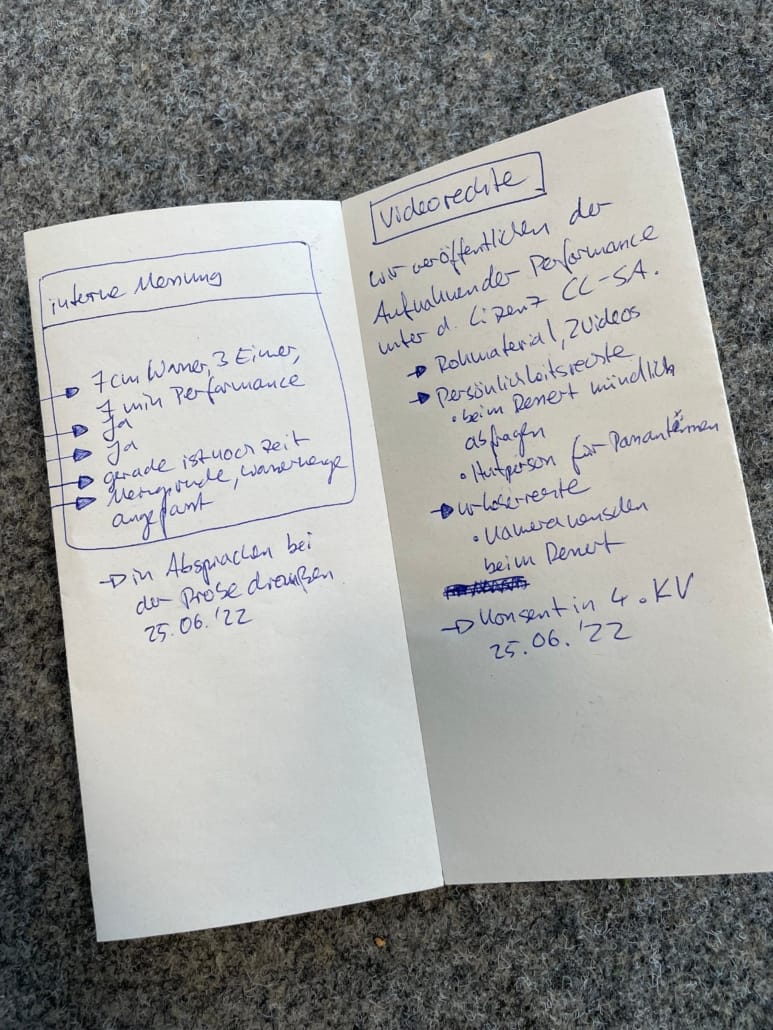 interne Messung
7 cm Wasser, 3 Eimer,
7 min Performance
Ja
Ja
gerade ist noch Zeit
Messgründe, Wassermenge
angepasst
in Absprachen bei
der Probe draußen
25.06.'22
Videorechte
wir veröffentlichen der
Aufnahmen der Performance
unter d. Lizenz CC-SA.
Rohmaterial, 2 Videos
Persönlichkeitsrechte
• beim Konzert mündlich
abfragen
• Hutperson für
Urheberrechte
• Kameramenschen
beim Konzert
Konsent in 4. KV
25.06.'22